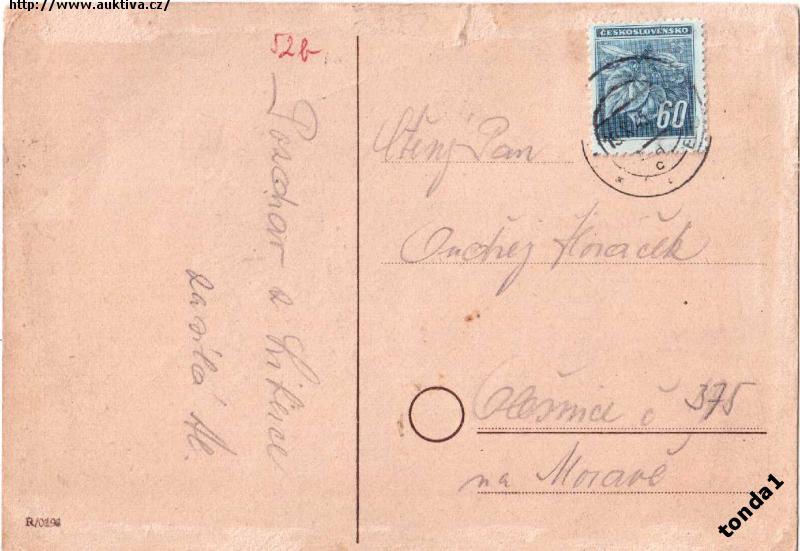 http://www.auktiva.cz/
52b
Pozdrav z
zasílá
ČESKOSLOVENSKO
60
Ctěný Pan
Ondřej Horáček
Olešnice č 375
na Moravě
R/0196
tonda1